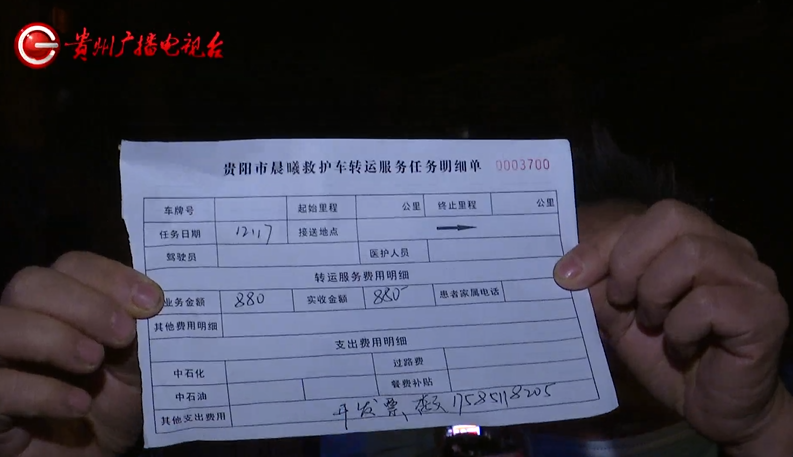 贵州广播电视台
贵阳市晨曦救护车转运服务任务明细单 0003700
车牌号 起始里程 公里 终止里程 公里
任务日期 12.17 接送地点 →
驾驶员 医护人员
转运服务费用明细
业务金额 880 实收金额 880 患者家属电话
其他费用明细
支出费用明细
中石化 过路费
中石油 餐费补贴
其他支出费用 开发票、 17585118205